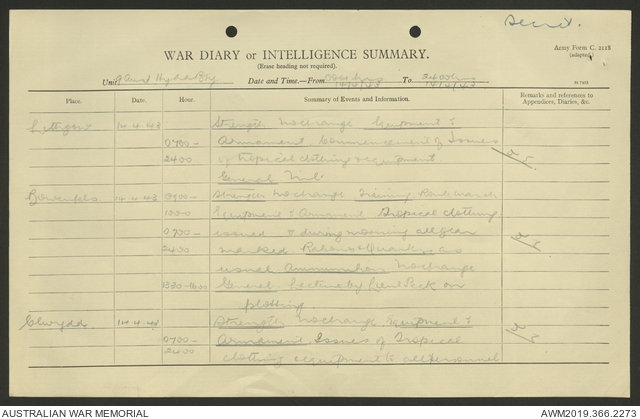 Secret.
Army Form C. 2118
(adapted)
WAR DIARY or INTELLIGENCE SUMMARY.
(Erase heading not required).
Unit Date and Time.—From To 2400 hrs
14/4/43 14/4/43
Place. Date. Hour. Summary of Events and Information. Remarks and references to Appendices, Diaries, &c.
Lithgow 14.4.43 Strength No change Equipment &
0700— Armament Commencement of Issues
2400 of tropical clothing & equipment.
General Nil.
Bowenfels 14.4.43 0900— Strength No change Training Route march
1000 Equipment & Armament Tropical clothing
0700— issued & during morning all gear
2400 marked Rations & Quarters as
usual Ammunition No change
1330-1600 General Lecture by Lieut Peck on
plotting
Clwydd 14.4.43 Strength No change Equipment &
0700— Armament Issues of Tropical
2400 clothing & equipment to all personnel
AUSTRALIAN WAR MEMORIAL
AWM2019.366.2273